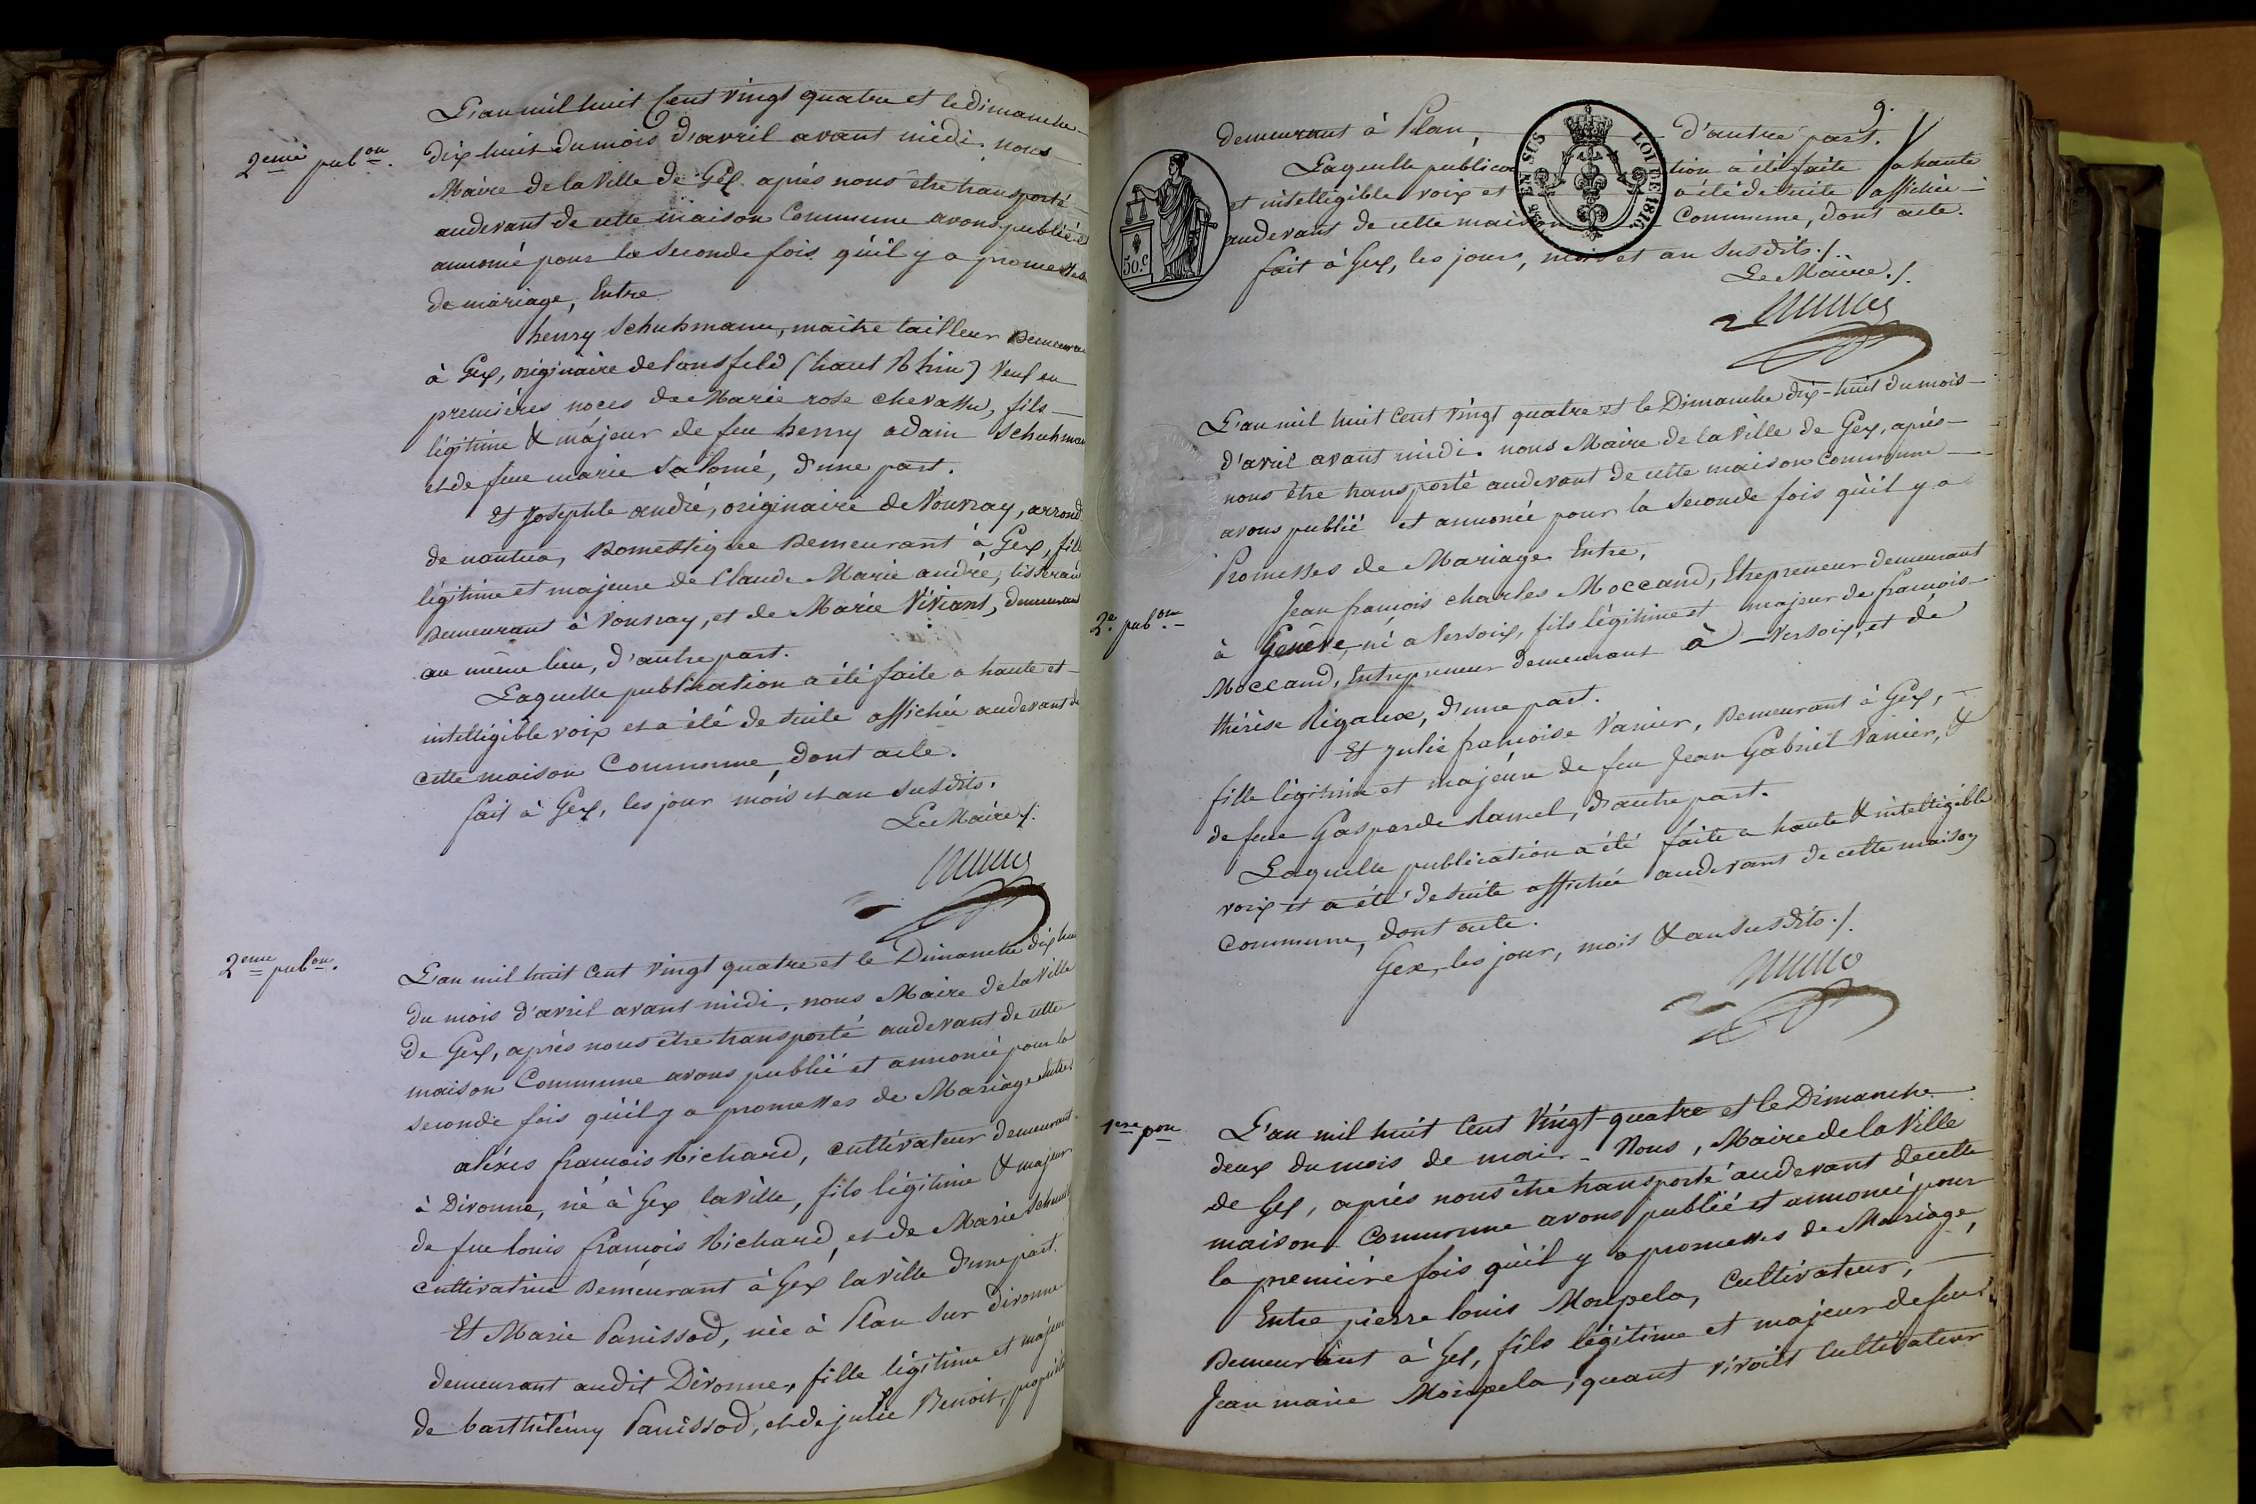 2eme pubon.
L'an mil huit Cent vingt quatre et le dimanche
dix huit du mois d'avril avant midi. nous
Maire de la Ville de Gex après nous être transporté
audevant de cette maison Commune avons publié et
annoncé pour la seconde fois qu'il y a promesses
de mariage, Entre
henry Schuhmann, maitre tailleur Demeurant
à Gex, originaire de (haut Rhin) Veuf en
premières noces de Marie rose chevassu, fils
légitime & majeur de feu henry adam Schuhman
et de feue marie Salomé, d'une part.
Et Josephte andré, originaire de Vouvray, arrond.
de nantua, Domestique Demeurant à Gex, fille
légitime et majeure de Claude Marie andré, tisserand
Demeurant à Vouvray, et de Marie Viviant, demeurant
au même lieu, d'autre part.
Laquelle publication a été faite a haute et
intelligible voix et a été de suite affichée audevant de
cette maison Commune, dont acte.
fait à Gex, les jour mois et an susdits.
Le Maire /.
2eme pubon.
L'an mil huit Cent vingt quatre et le Dimanche dix huit
du mois d'avril avant midi, nous Maire de la Ville
de Gex, après nous être transporté audevant de cette
maison Commune avons publié et annoncé pour la
seconde fois qu'il y a promesses de Mariage entre
aléxis françois Richard, cultivateur demeurant
à Divonne, né à Gex la ville, fils légitime & majeur
de feu louis françois Richard, et de Marie
cultivatrice Demeurant à Gex la ville d'une part.
Et Marie Panissod, née à Plan sur Divonne
demeurant audit Divonne, fille légitime et majeure
de barthélémy Panissod, et de julie Benoit,
9.
demeurant à Plan, d'autre part.
Laquelle publication a été faite a haute
et intelligible voix et a été de suite affichée
audevant de cette maison Commune, dont acte.
fait à Gex, les jour, mois et an susdits /.
Le Maire /.
50.c
EN SUS
LOI DE 1816.
L'an mil huit Cent vingt quatre et le Dimanche dix-huit du mois
d'avril avant midi. nous Maire de la Ville de Gex, après
nous être transporté audevant de cette maison commune
avons publié et annoncé pour la seconde fois qu'il y a
Promesses de Mariage Entre,
2e pubon
Jean françois charles Moccand, Etrepreneur demeurant
à Genêve, né a Versoix, fils légitime et majeur de françois
Moccand, Entrepreneur demeurant à Versoix, et de
thérèse Rigaux, d'une part.
Et julie françoise Vanier, Demeurant à Gex,
fille légitime et majeure de feu Jean Gabriel Vanier, &
de feue Gasparde Ramel, d'autre part.
Laquelle publication a été faite a haute & intelligible
voix et a été de suite affichée audevant de cette maison
Commune, dont acte.
Gex, les jour, mois & an susdits /.
1ere pon
L'an mil huit Cent Vingt-quatre et le Dimanche
deux du mois de mai - Nous, Maire de la Ville
de Gex, après nous être transporté audevant de cette
maison Commune avons publié et annoncé pour
la première fois qu'il y a promesses de Mariage,
Entre pierre louis Monpela, Cultivateur,
Demeurant à Gex, fils légitime et majeur de feu
Jean marie Monpela, quant vivoit Cultivateur